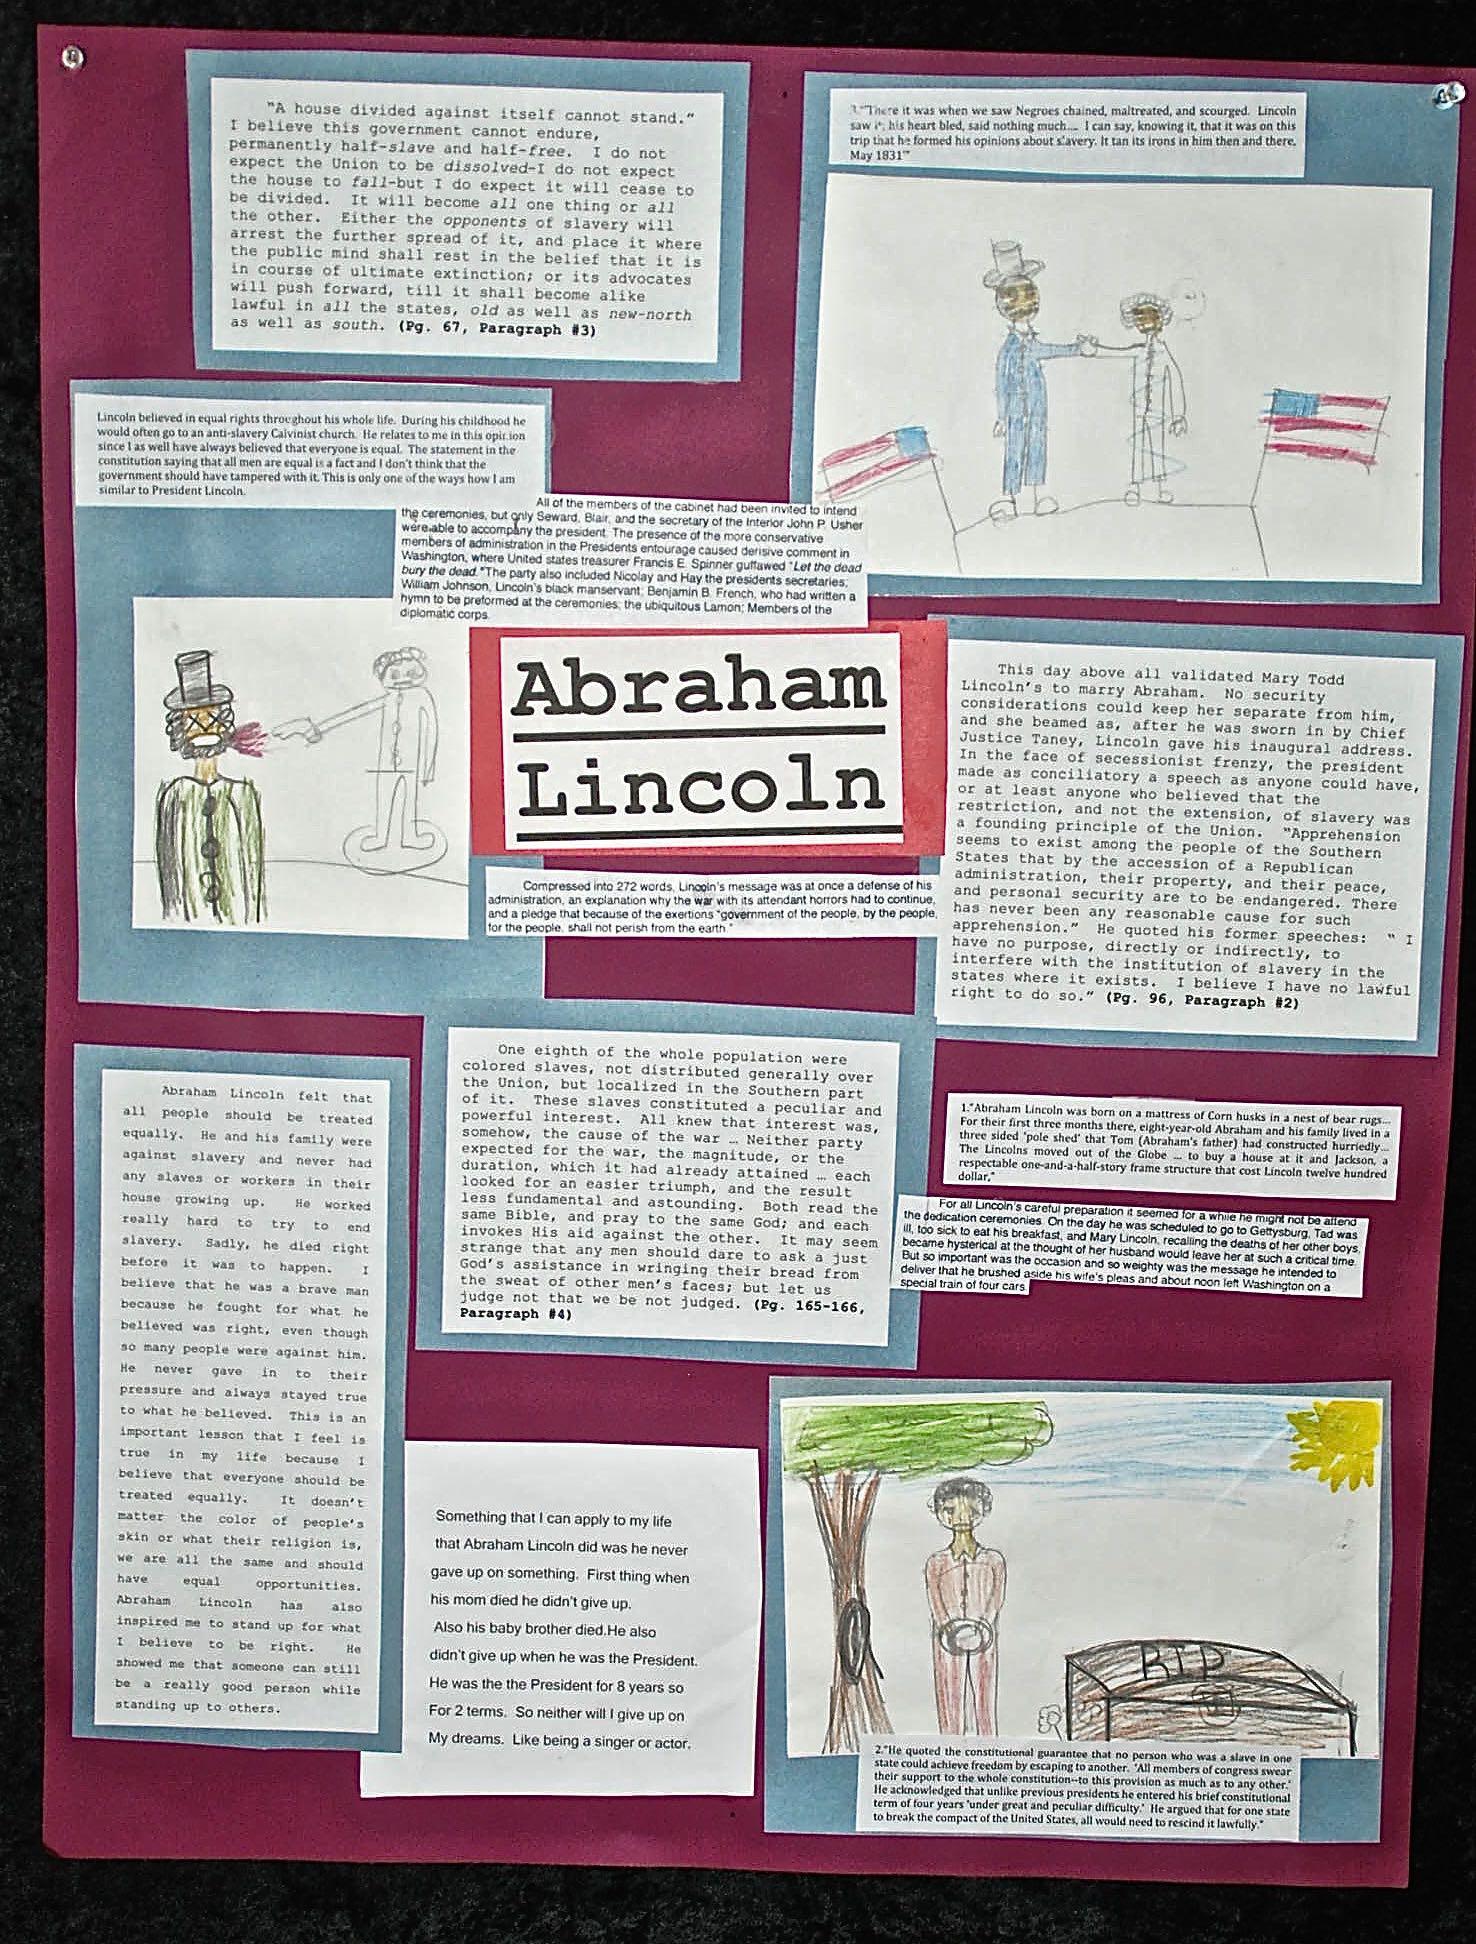 "A house divided against itself cannot stand."
I believe this government cannot endure,
permanently half-slave and half-free. I do not
expect the Union to be dissolved-I do not expect
the house to fall-but I do expect it will cease to
be divided. It will become all one thing or all
the other. Either the opponents of slavery will
arrest the further spread of it, and place it where
the public mind shall rest in the belief that it is
in course of ultimate extinction; or its advocates
will push forward, till it shall become alike
lawful in all the states, old as well as new-north
as well as south. (Pg. 67, Paragraph #3)
3."There it was when we saw Negroes chained, maltreated, and scourged. Lincoln
saw it; his heart bled, said nothing much.... I can say, knowing it, that it was on this
trip that he formed his opinions about slavery. It tan its irons in him then and there.
May 1831"
Lincoln believed in equal rights throughout his whole life. During his childhood he
would often go to an anti-slavery Calvinist church. He relates to me in this opinion
since I as well have always believed that everyone is equal. The statement in the
constitution saying that all men are equal is a fact and I don't think that the
government should have tampered with it. This is only one of the ways how I am
similar to President Lincoln.
All of the members of the cabinet had been invited to intend
the ceremonies, but only Seward, Blair, and the secretary of the Interior John P. Usher
were able to accompany the president. The presence of the more conservative
members of administration in the Presidents entourage caused derisive comment in
Washington, where United states treasurer Francis E. Spinner guffawed "Let the dead
bury the dead."The party also included Nicolay and Hay the presidents secretaries;
William Johnson, Lincoln's black manservant; Benjamin B. French, who had written a
hymn to be preformed at the ceremonies; the ubiquitous Lamon; Members of the
diplomatic corps.
Abraham
Lincoln
This day above all validated Mary Todd
Lincoln's to marry Abraham. No security
considerations could keep her separate from him,
and she beamed as, after he was sworn in by Chief
Justice Taney, Lincoln gave his inaugural address.
In the face of secessionist frenzy, the president
made as conciliatory a speech as anyone could have,
or at least anyone who believed that the
restriction, and not the extension, of slavery was
a founding principle of the Union. "Apprehension
seems to exist among the people of the Southern
States that by the accession of a Republican
administration, their property, and their peace,
and personal security are to be endangered. There
has never been any reasonable cause for such
apprehension." He quoted his former speeches: " I
have no purpose, directly or indirectly, to
interfere with the institution of slavery in the
states where it exists. I believe I have no lawful
right to do so." (Pg. 96, Paragraph #2)
Compressed into 272 words, Lincoln's message was at once a defense of his
administration, an explanation why the war with its attendant horrors had to continue,
and a pledge that because of the exertions "government of the people, by the people,
for the people, shall not perish from the earth."
One eighth of the whole population were
colored slaves, not distributed generally over
the Union, but localized in the Southern part
of it. These slaves constituted a peculiar and
powerful interest. All knew that interest was,
somehow, the cause of the war … Neither party
expected for the war, the magnitude, or the
duration, which it had already attained … each
looked for an easier triumph, and the result
less fundamental and astounding. Both read the
same Bible, and pray to the same God; and each
invokes His aid against the other. It may seem
strange that any men should dare to ask a just
God's assistance in wringing their bread from
the sweat of other men's faces; but let us
judge not that we be not judged. (Pg. 165-166,
Paragraph #4)
1."Abraham Lincoln was born on a mattress of Corn husks in a nest of bear rugs...
For their first three months there, eight-year-old Abraham and his family lived in a
three sided 'pole shed' that Tom (Abraham's father) had constructed hurriedly...
The Lincolns moved out of the Globe ... to buy a house at it and Jackson, a
respectable one-and-a-half-story frame structure that cost Lincoln twelve hundred
dollar."
For all Lincoln's careful preparation it seemed for a while he might not be attend
the dedication ceremonies. On the day he was scheduled to go to Gettysburg, Tad was
ill, too sick to eat his breakfast, and Mary Lincoln, recalling the deaths of her other boys,
became hysterical at the thought of her husband would leave her at such a critical time.
But so important was the occasion and so weighty was the message he intended to
deliver that he brushed aside his wife's pleas and about noon left Washington on a
special train of four cars.
Abraham Lincoln felt that
all people should be treated
equally. He and his family were
against slavery and never had
any slaves or workers in their
house growing up. He worked
really hard to try to end
slavery. Sadly, he died right
before it was to happen. I
believe that he was a brave man
because he fought for what he
believed was right, even though
so many people were against him.
He never gave in to their
pressure and always stayed true
to what he believed. This is an
important lesson that I feel is
true in my life because I
believe that everyone should be
treated equally. It doesn't
matter the color of people's
skin or what their religion is,
we are all the same and should
have equal opportunities.
Abraham Lincoln has also
inspired me to stand up for what
I believe to be right. He
showed me that someone can still
be a really good person while
standing up to others.
Something that I can apply to my life
that Abraham Lincoln did was he never
gave up on something. First thing when
his mom died he didn't give up.
Also his baby brother died.He also
didn't give up when he was the President.
He was the the President for 8 years so
For 2 terms. So neither will I give up on
My dreams. Like being a singer or actor.
RIP
2."He quoted the constitutional guarantee that no person who was a slave in one
state could achieve freedom by escaping to another. 'All members of congress swear
their support to the whole constitution--to this provision as much as to any other.'
He acknowledged that unlike previous presidents he entered his brief constitutional
term of four years 'under great and peculiar difficulty.' He argued that for one state
to break the compact of the United States, all would need to rescind it lawfully."